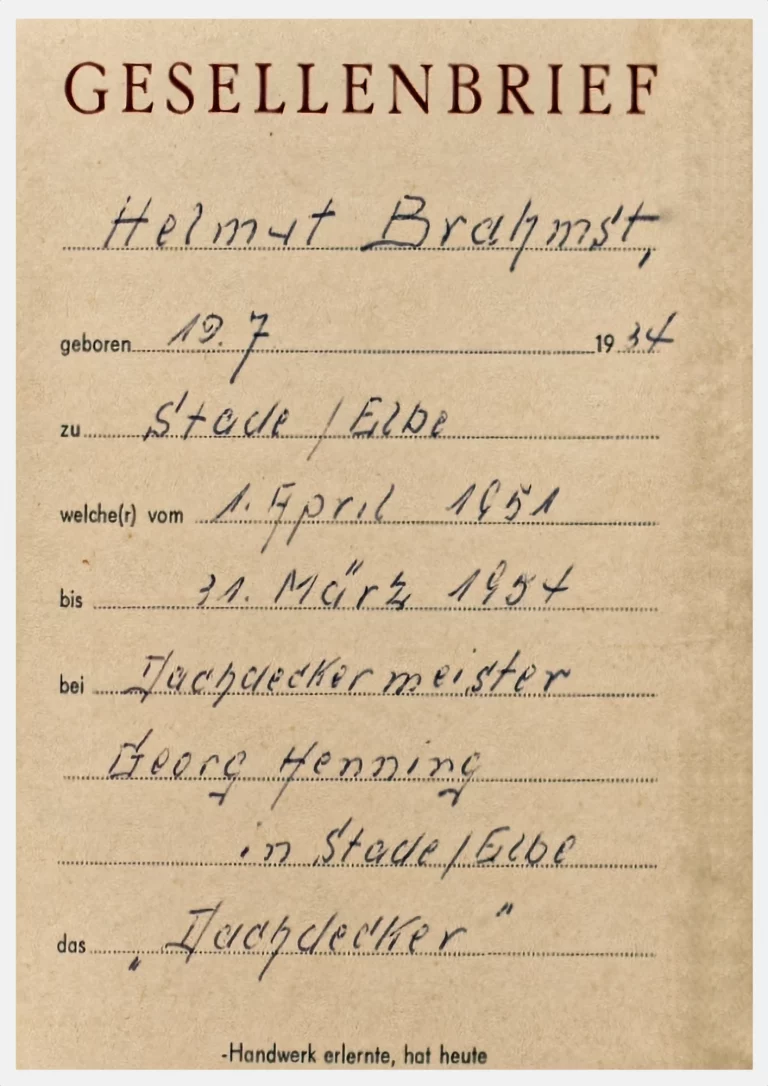 GESELLENBRIEF
Helmut Brahmst,
geboren 19.7 1934
zu Stade / Elbe
welche(r) vom 1. April 1951
bis 31. März 1954
bei Dachdeckermeister
Georg Henning
in Stade / Elbe
das „Dachdecker"
-Handwerk erlernte, hat heute